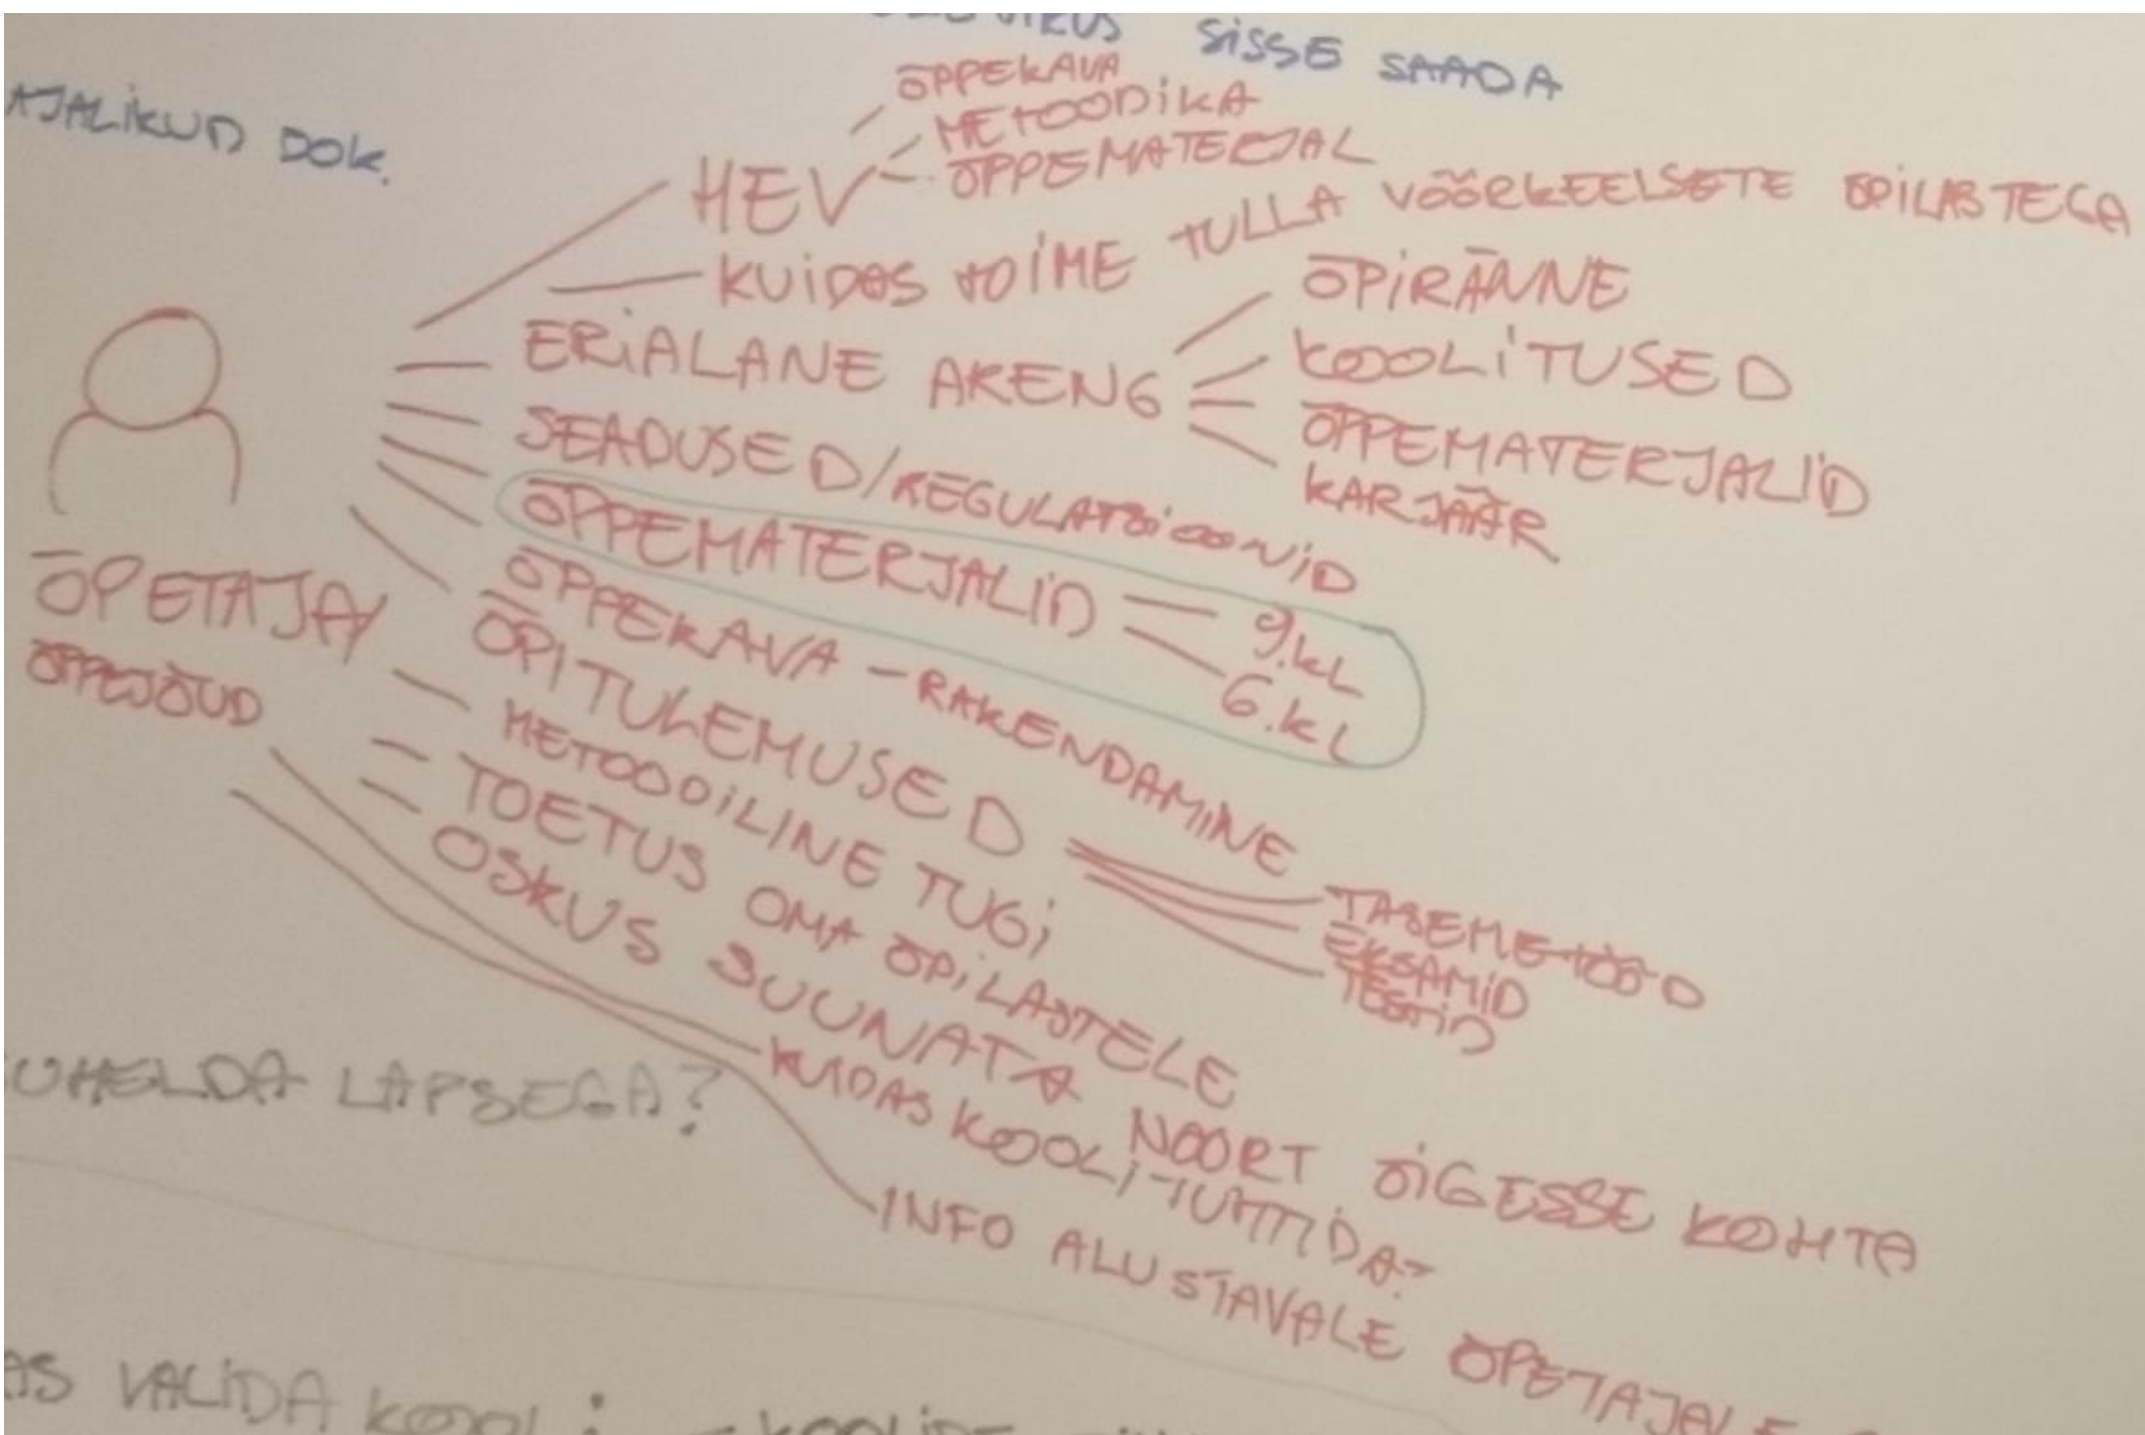 SISSE SAADA
AJALIKUD DOK.
ÕPPEKAVA
METOODIKA
ÕPPEMATERJAL
HEV
KUIDAS TOIME TULLA VÕÕRKEELSETE ÕPILASTEGA
ERIALANE ARENG
ÕPIRÄNNE
KOOLITUSED
ÕPPEMATERJALID
KARJÄÄR
SEADUSED/REGULATSIOONID
ÕPPEMATERJALID
9.KL
6.KL
ÕPETAJA/
ÕPPEJÕUD
ÕPPEKAVA - RAKENDAMINE
ÕPITULEMUSED
TASEMETÖÖD
EKSAMID
TESTID
METOODILINE TUGI
TOETUS OMA ÕPILASTELE
OSKUS SUUNATA NOORT ÕIGESSE KOHTA
KUIDAS KOOLITUTTIDA?
INFO ALUSTAVALE ÕPETAJALE
UHELDA LAPSEGA?
AS VALIDA KOOLI